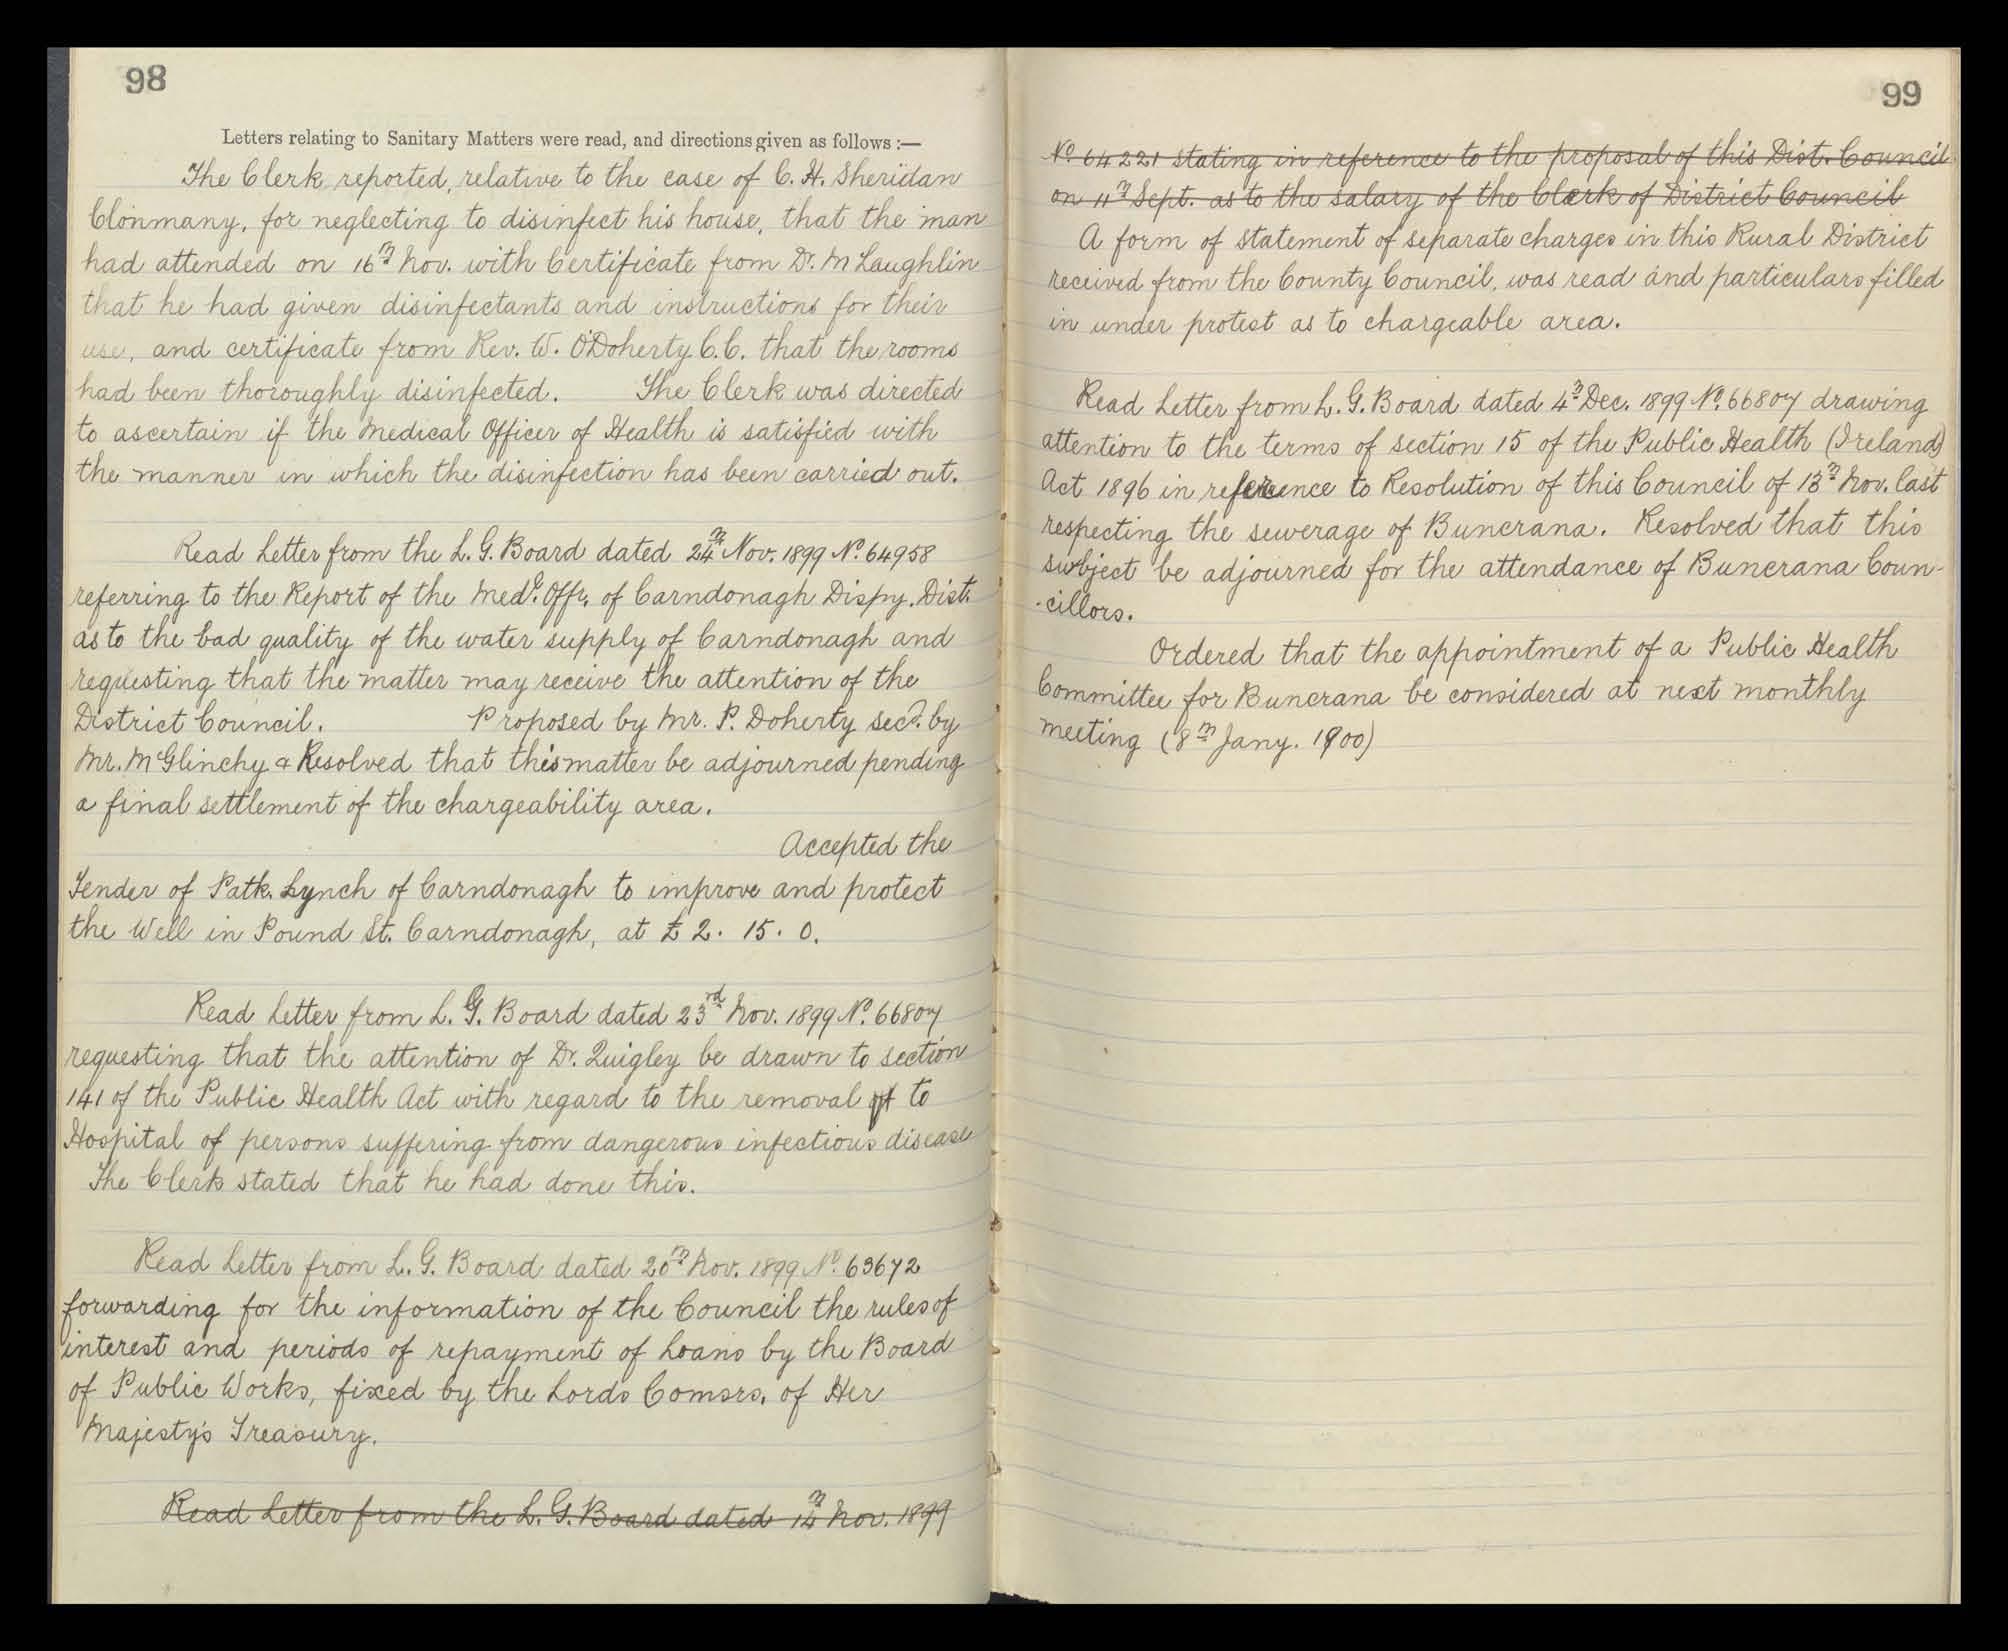 98
Letters relating to Sanitary Matters were read, and directions given as follows :—
The Clerk reported, relative to the case of C. H. Sheridan
Clonmany, for neglecting to disinfect his house, that the man
had attended on 16th Nov. with Certificate from Dr. McLaughlin
that he had given disinfectants and instructions for their
use, and certificate from Rev. W. O'Doherty C.C. that the rooms
had been thoroughly disinfected. The Clerk was directed
to ascertain if the Medical Officer of Health is satisfied with
the manner in which the disinfection has been carried out.
Read Letter from the L. G. Board dated 24th Nov. 1899 No. 64958
referring to the Report of the Medl. Offr. of Carndonagh Dispy. Dist.
as to the bad quality of the water supply of Carndonagh and
requesting that the matter may receive the attention of the
District Council. Proposed by Mr. P. Doherty secd. by
Mr. McGlinchy & Resolved that this matter be adjourned pending
a final settlement of the chargeability area.
Accepted the
Tender of Patk. Lynch of Carndonagh to improve and protect
the Well in Pound St. Carndonagh, at £2. 15. 0.
Read Letter from L. G. Board dated 23rd Nov. 1899 No. 66807
requesting that the attention of Dr. Quigley be drawn to section
141 of the Public Health Act with regard to the removal of to
Hospital of persons suffering from dangerous infectious disease
The Clerk stated that he had done this.
Read Letter from L. G. Board dated 20th Nov. 1899 No. 63672
forwarding for the information of the Council the rules of
interest and periods of repayment of Loans by the Board
of Public Works, fixed by the Lords Comsrs. of Her
Majesty's Treasury.
Read Letter from the L. G. Board dated 14th Nov. 1899
99
No. 64221 stating in reference to the proposal of this Dist. Council
on 11th Sept. as to the salary of the Clerk of District Council
A form of statement of separate charges in this Rural District
received from the County Council, was read and particulars filled
in under protest as to chargeable area.
Read Letter from L. G. Board dated 4th Dec. 1899 No. 66807 drawing
attention to the terms of section 15 of the Public Health (Ireland)
Act 1896 in reference to Resolution of this Council of 13th Nov. last
respecting the sewerage of Buncrana. Resolved that this
subject be adjourned for the attendance of Buncrana Coun-
-cillors.
Ordered that the appointment of a Public Health
Committee for Buncrana be considered at next monthly
meeting (8th Jany. 1900)